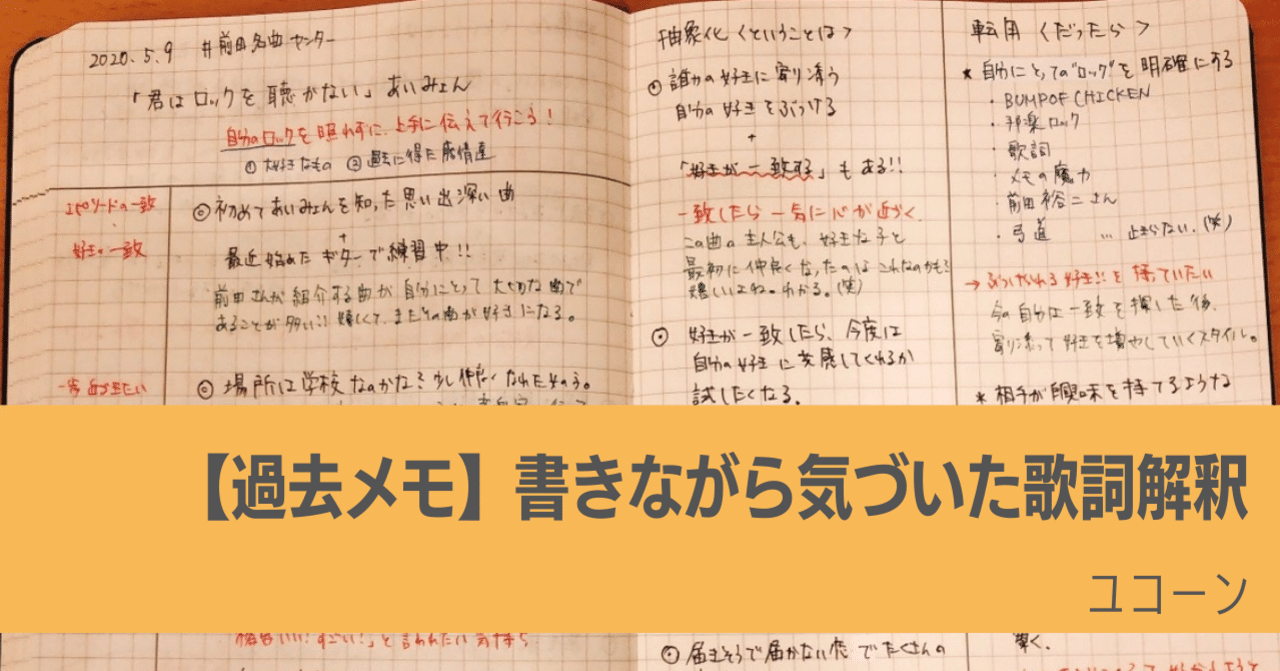 2020.5.9 #前田名曲センター
「君はロックを聴かない」あいみょん
自分のロックを照れずに、上手に伝えて行こう！
① 大好きなもの ② 過去に得た感情達
エピソードの一致
・
好きの一致
◎ 初めてあいみょんを知った思い出深い曲
+
最近始めたギターで練習中!!
前田さんが紹介する曲が自分にとって大切な曲で
あることが多い!! 嬉しくて、またその曲が好きになる。
◎ 場所は学校なのかな？少し仲良くなれたその子。
抽象化〈ということは〉
⊙ 誰かの好きに寄り添う
自分の好きをぶつける
+
「好きが一致する」もある!!
一致したら一気に心が近づく
この曲の主人公も、好きな子と
最初に仲良くなったのはこれなのかも！
嬉しいよね。わかる。(笑)
⊙ 好きが一致したら、今度は
自分の好きに共感してくれるか
試したくなる。
転用〈だったら〉
* 自分にとっての"ロック"を明確にする
・BUMP OF CHICKEN
・邦楽ロック
・歌詞
・メモの魔力
・前田裕二さん
・弓道 … 止まらない。(笑)
→ ぶつけられる好き!!を持っていたい
今の自分は一致を探した後、
寄り添って好きを増やしていくスタイル。
* 相手が興味を持てるような
【過去メモ】書きながら気づいた歌詞解釈
ユコーン
すごい!」と言われたい気持ち
⊙ 届きそうで届かない恋でたくさんの